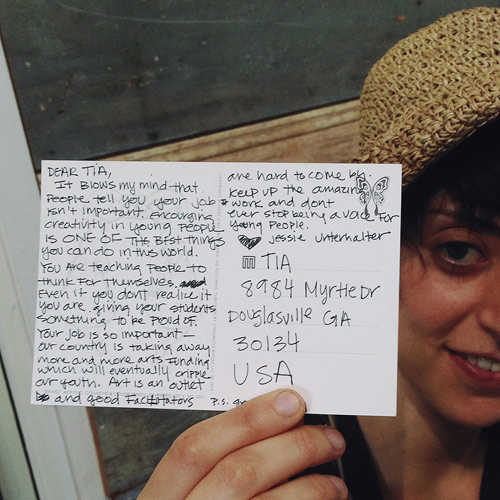 DEAR TIA,
IT BLOWS my mind that
PEOPLE tell you your job
ISN'T important. Encouraging
creativity in young people
is ONE OF THE BEST things
you can do in this world.
YOU ARE teaching people to
think for themselves.
Even if you don't realize it
you are giving your students
something to be proud of.
Your job is so important—
our country is taking away
more and more arts funding
which will eventually cripple
our youth. Art is an outlet
and good facilitators
are hard to come by.
Keep up the amazing
work and dont
ever stop being a voice for
young people.
jessie unterhalter
TIA
8984 Myrtle Dr
Douglasville GA
30134
USA
P.S.